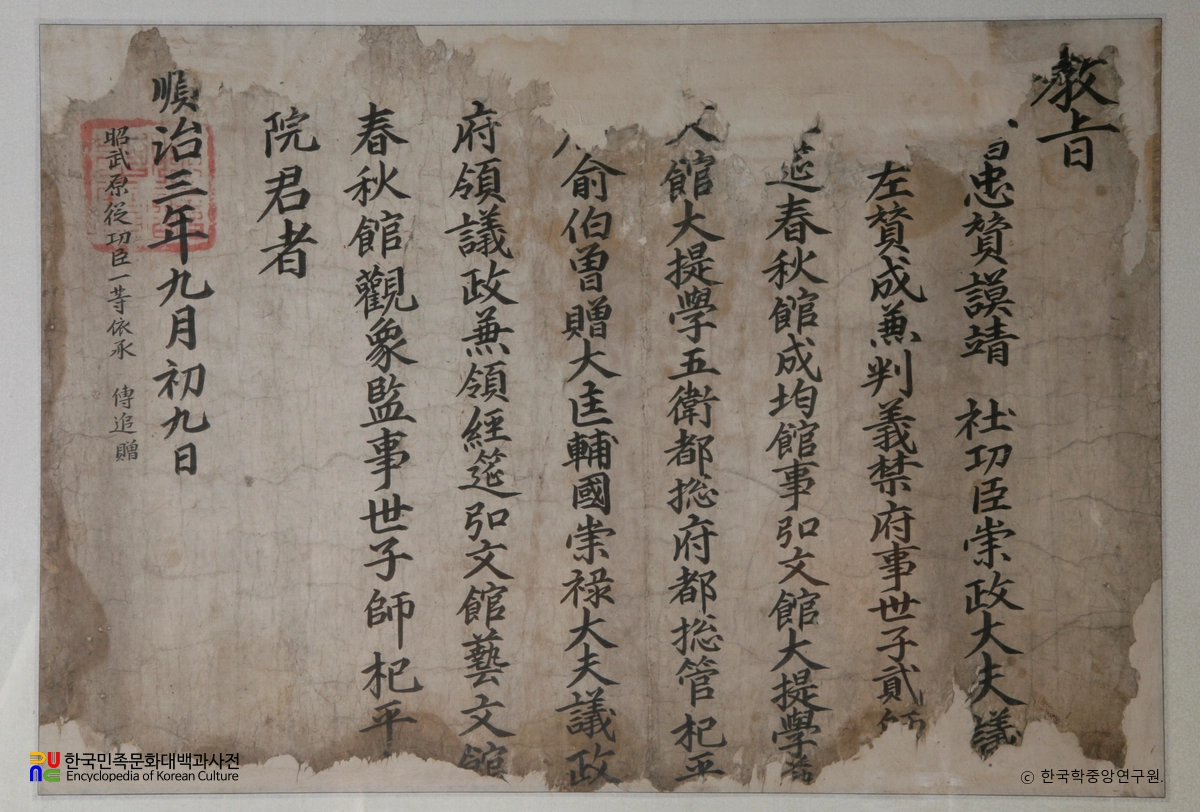 教旨
忠贊謨靖 社功臣崇政大夫議
左賛成兼判義禁府事世子貳師
筵春秋館成均館事弘文館大提學藝
文館大提學五衛都捴府都捴管杞平
俞伯曽贈大匡輔國崇禄大夫議政
府領議政兼領經筵弘文館藝文館
春秋館觀象監事世子師杞平
院君者
順治三年九月初九日
昭武原從功臣一等依承 傳追贈
한국민족문화대백과사전
Encyclopedia of Korean Culture
© 한국학중앙연구원.